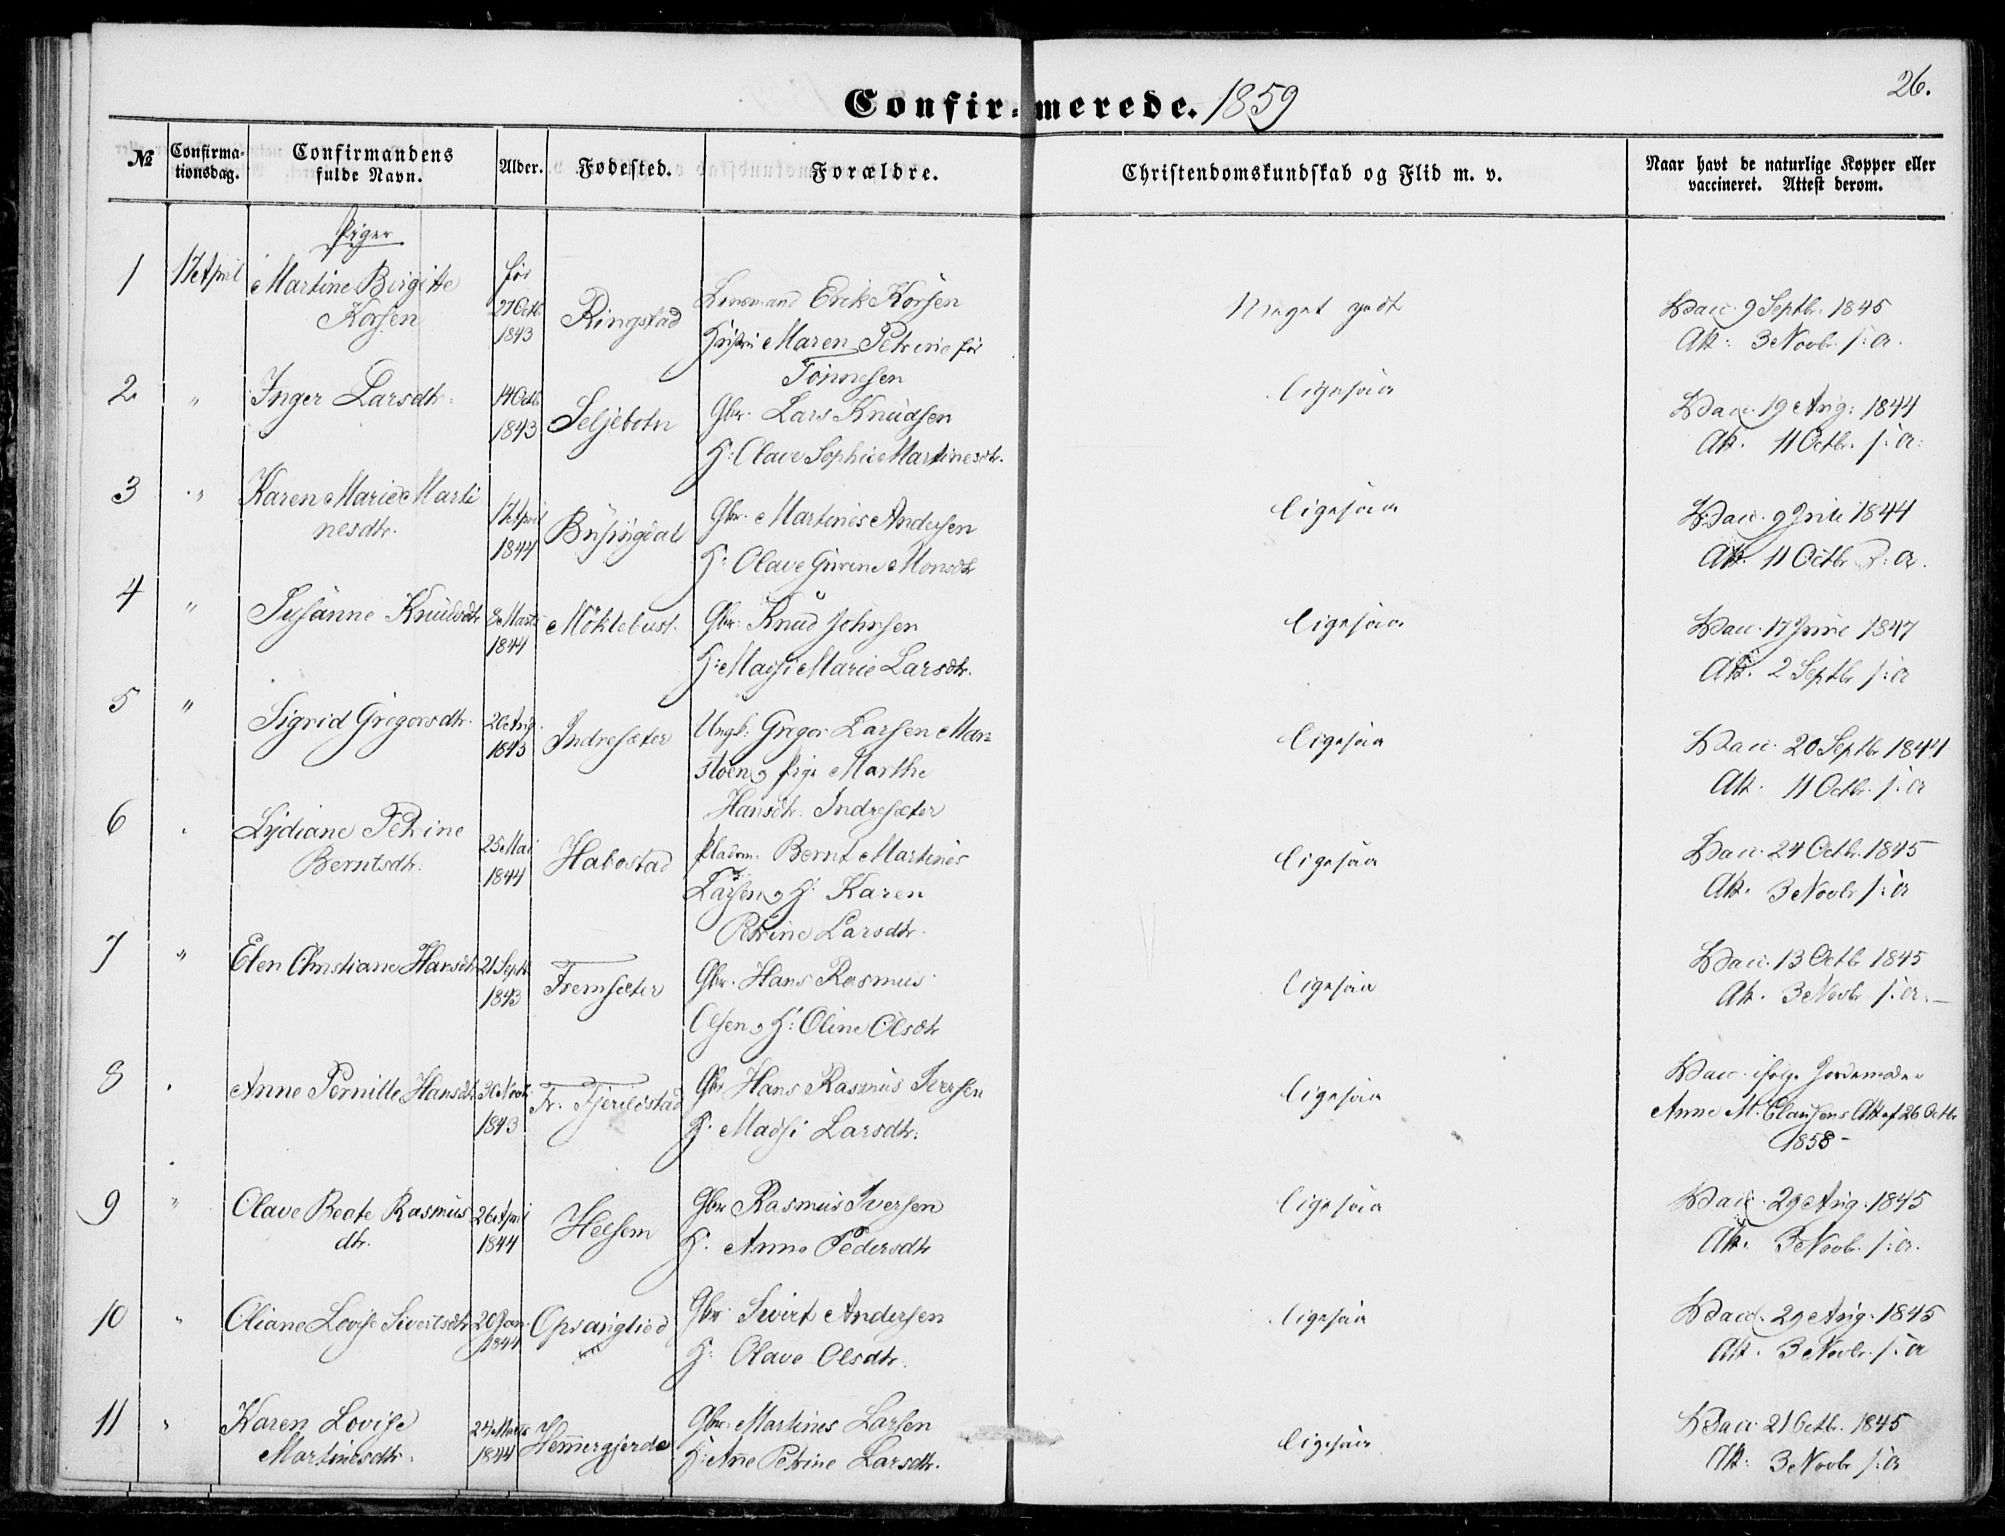 26.
Confirmerede. 1859
№ Confirmationsdag. Confirmandens fulde Navn. Alder. Fødested. Forældre. Christendomskundskab og Flid m. v. Naar havt de naturlige Kopper eller vaccineret. Attest derom.
Piger
1 17 April Martine Birgitte før
Korsen 27 Octb 1843 Ringstad Lensmand Erik Korsen Meget godt Vacc. 9 Septbr. 1845
Maren Petrine før Att: 3 Novbr. s: a.
Tönnesen
2 " Inger Larsdtr. 14 Octb 1843 Seljebotn Gbr. Lars Knudsen ligesaa Vacc. 19 Aug: 1844
H: Olave Sophie Martinesdtr. Att. 11 Octbr. s: a:
3 " Karen Marie Marti
nesdtr. 17 April 1844 Busingdal Gbr. Martines Andersen ligesaa Vacc. 9 Juli 1844
H: Olave Gurine Monsdtr Att. 11 Octbr s: a.
4 " Susanne Knudsdtr 8 Marts 1844 Möklebust. Gbr: Knud Johnsen ligesaa Vacc. 17 Juni 1847
H: Madsi Marie Larsdtr. Att. 2 Septbr s: a
5 " Sigrid Gregorsdtr. 20 Aug. 1843 Indresæter Ungk: Gregor Larsen Mar=
støen og Pige Marthe ligesaa Vacc. 20 Septbr 1844
Hansdtr. Indresæter Att. 11 Octbr. s: a
6 " Lydiane Petrine
Berntsdtr. 25 Mai 1844 Habostad Pladsm. Bernt Martines ligesaa Vacc. 24 Octbr. 1845
Larsen og H: Karen Att. 3 Novbr s: a
Petrine Larsdtr.
7 " Elen Christiane Hansdtr 21 Septb 1843 Fremsæter Gbr. Hans Rasmus ligesaa Vacc. 13 Octbr 1845
Olsen og H: Oline Olsdtr Att. 3 Novbr s: a.
8 " Anne Pernille Hansdtr 30 Novb 1843 Fr. Fjerildstad Gbr Hans Rasmus Iversen ligesaa Vacc. ifølge Jordemoder
H. Madsi Larsdtr. Anne M. Clausens Att af 26 Octbr
1858
9 " Olave Beate Rasmus
dtr. 26 April 1844 Helsem Gbr Rasmus Iversen ligesaa Vacc. 29 Aug. 1845
H. Anne Pedersdtr Att. 3 Novbr. s: a.
10 " Oliane Lovise Sivertsdtr 20 Jan. 1844 Opsanglied Gbr. Sivert Andersen ligesaa Vacc. 29 Aug. 1845
H: Olave Olsdtr. Att. 3 Novbr. s: a
11 " Karen Lovise
Martinesdtr. 24 Marts 1844 Hemmergjerde Gbr. Martines Larsen ligesaa Vacc. 21 Octbr. 1845
H: Ane Petrine Larsdtr. Att: 3 Novbr s: a